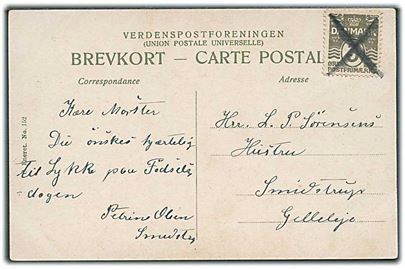 VERDENSPOSTFORENINGEN
(UNION POSTALE UNIVERSELLE)
BREVKORT — CARTE POSTALE
Correspondance
Adresse
DANMARK
POSTFRIMÆRKE
Eneret. No. 152
Kære Moster
Du ønskes hjertelig
til Lykke paa Fødsels
dagen
Petrine Olsen
Smidst
Hrr. L. P. Sørensens
Hustru
Smidstrup
Gilleleje